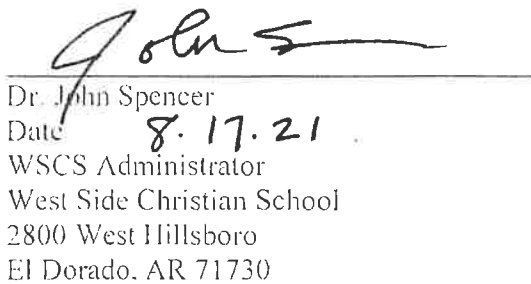 John S
Dr. John Spencer
Date 8.17.21
WSCS Administrator
West Side Christian School
2800 West Hillsboro
El Dorado, AR 71730